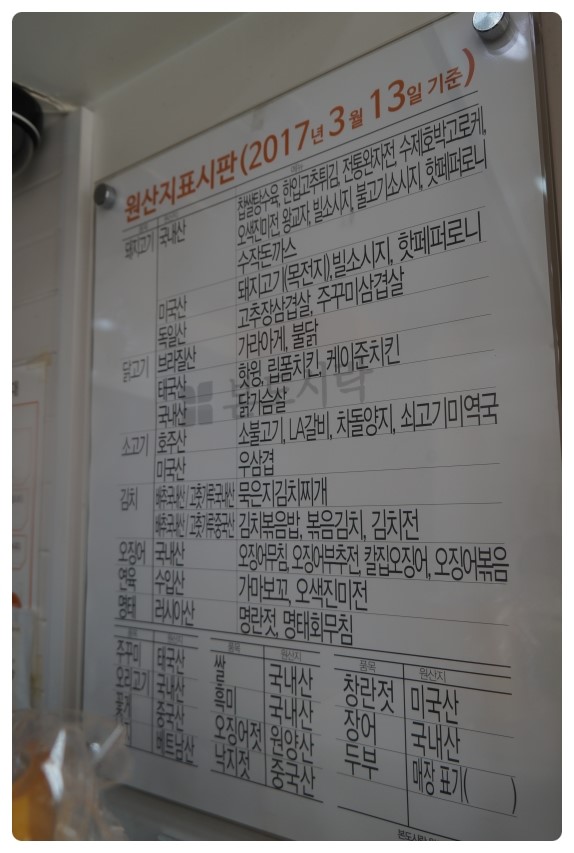 원산지표시판(2017년 3월 13일 기준)
돼지고기 국내산 찹쌀탕수육, 한입고추튀김, 전통완자전, 수제호박고로케,
오색진미전, 왕교자, 빌소시지, 불고기소시지, 핫페퍼로니
수작돈까스
미국산 돼지고기(목전지), 빌소시지, 핫페퍼로니
독일산 고추장삼겹살, 주꾸미삼겹살
닭고기 브라질산 가라아게, 불닭
태국산 핫윙, 림폼치킨, 케이준치킨
국내산 닭가슴살
소고기 호주산 소불고기, LA갈비, 차돌양지, 쇠고기미역국
미국산 우삼겹
김치 배추국내산/고춧가루국내산 묵은지김치찌개
배추국내산/고춧가루중국산 김치볶음밥, 볶음김치, 김치전
오징어 국내산 오징어무침, 오징어부추전, 칼집오징어, 오징어볶음
연육 수입산 가마보꼬, 오색진미전
명태 러시아산 명란젓, 명태회무침
품목 원산지 품목 원산지 품목 원산지
주꾸미 태국산 쌀 국내산 창란젓 미국산
오리고기 국내산 흑미 국내산 장어 국내산
중국산 오징어젓 원양산 두부 매장 표기( )
베트남산 낙지젓 중국산